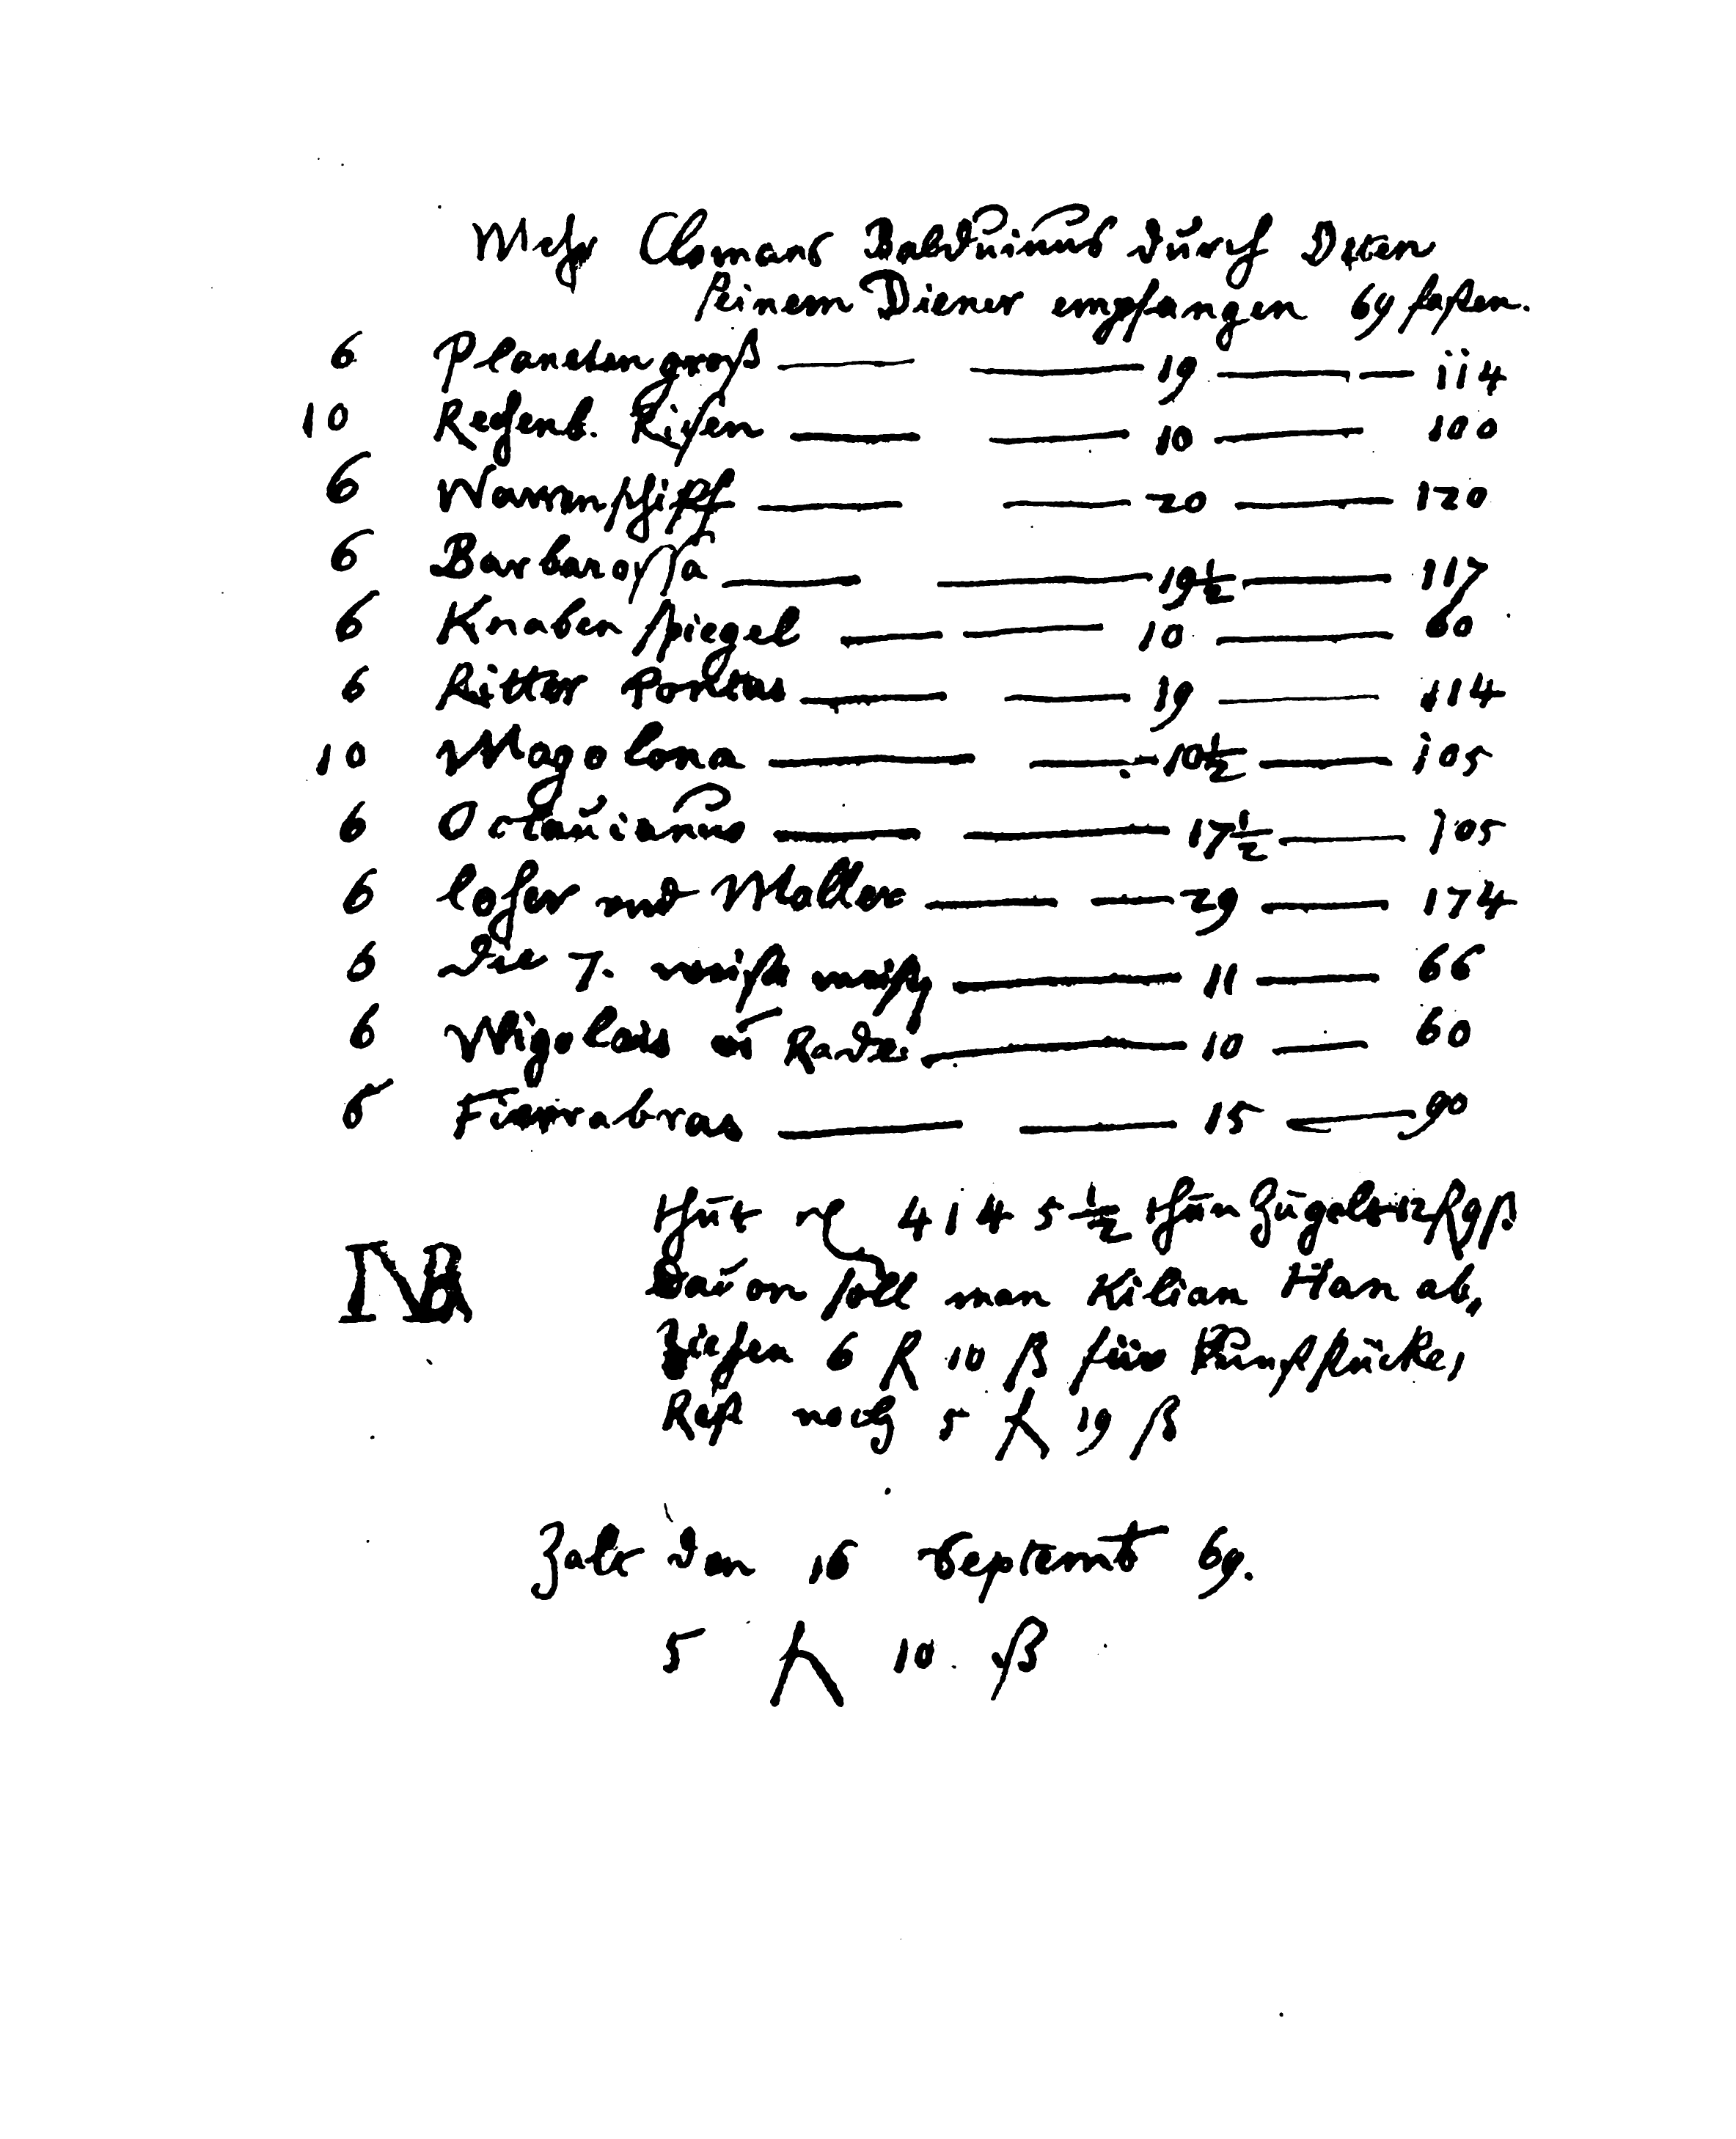 Mehr Clomans Balduinus durch Deten
seinem Diener empfangen 69 fasten.
6 Planeten groß — — 19 — — 114
10 Regenb. Risen — — 10 — 100
6 Narrenschiff — — 20 — 120
6 Barbarossa — — 19½ — 117
6 Knaben spiegel — — 10 — 60
6 Ritter Pontus — — 19 — 114
10 Magolona — — 10½ — 105
6 Octauianus — — 17½ — 105
6 Loher vnd Maller — — 29 — 174
6 Die 7. weisse maister — 11 — 66
6 Wigolais vom Rade — 10 — 60
6 Fierrabras — — 15 — 90
thut 4 14 5½ thun zu gelt 12 fl 9 ß
NB Dauon soll man Kilian Han ab,
ziehen 6 fl 10 ß für Kunststücke,
Rest noch 5 fl 19 ß
Zalt den 16 Septemb 69.
5 fl 10. ß